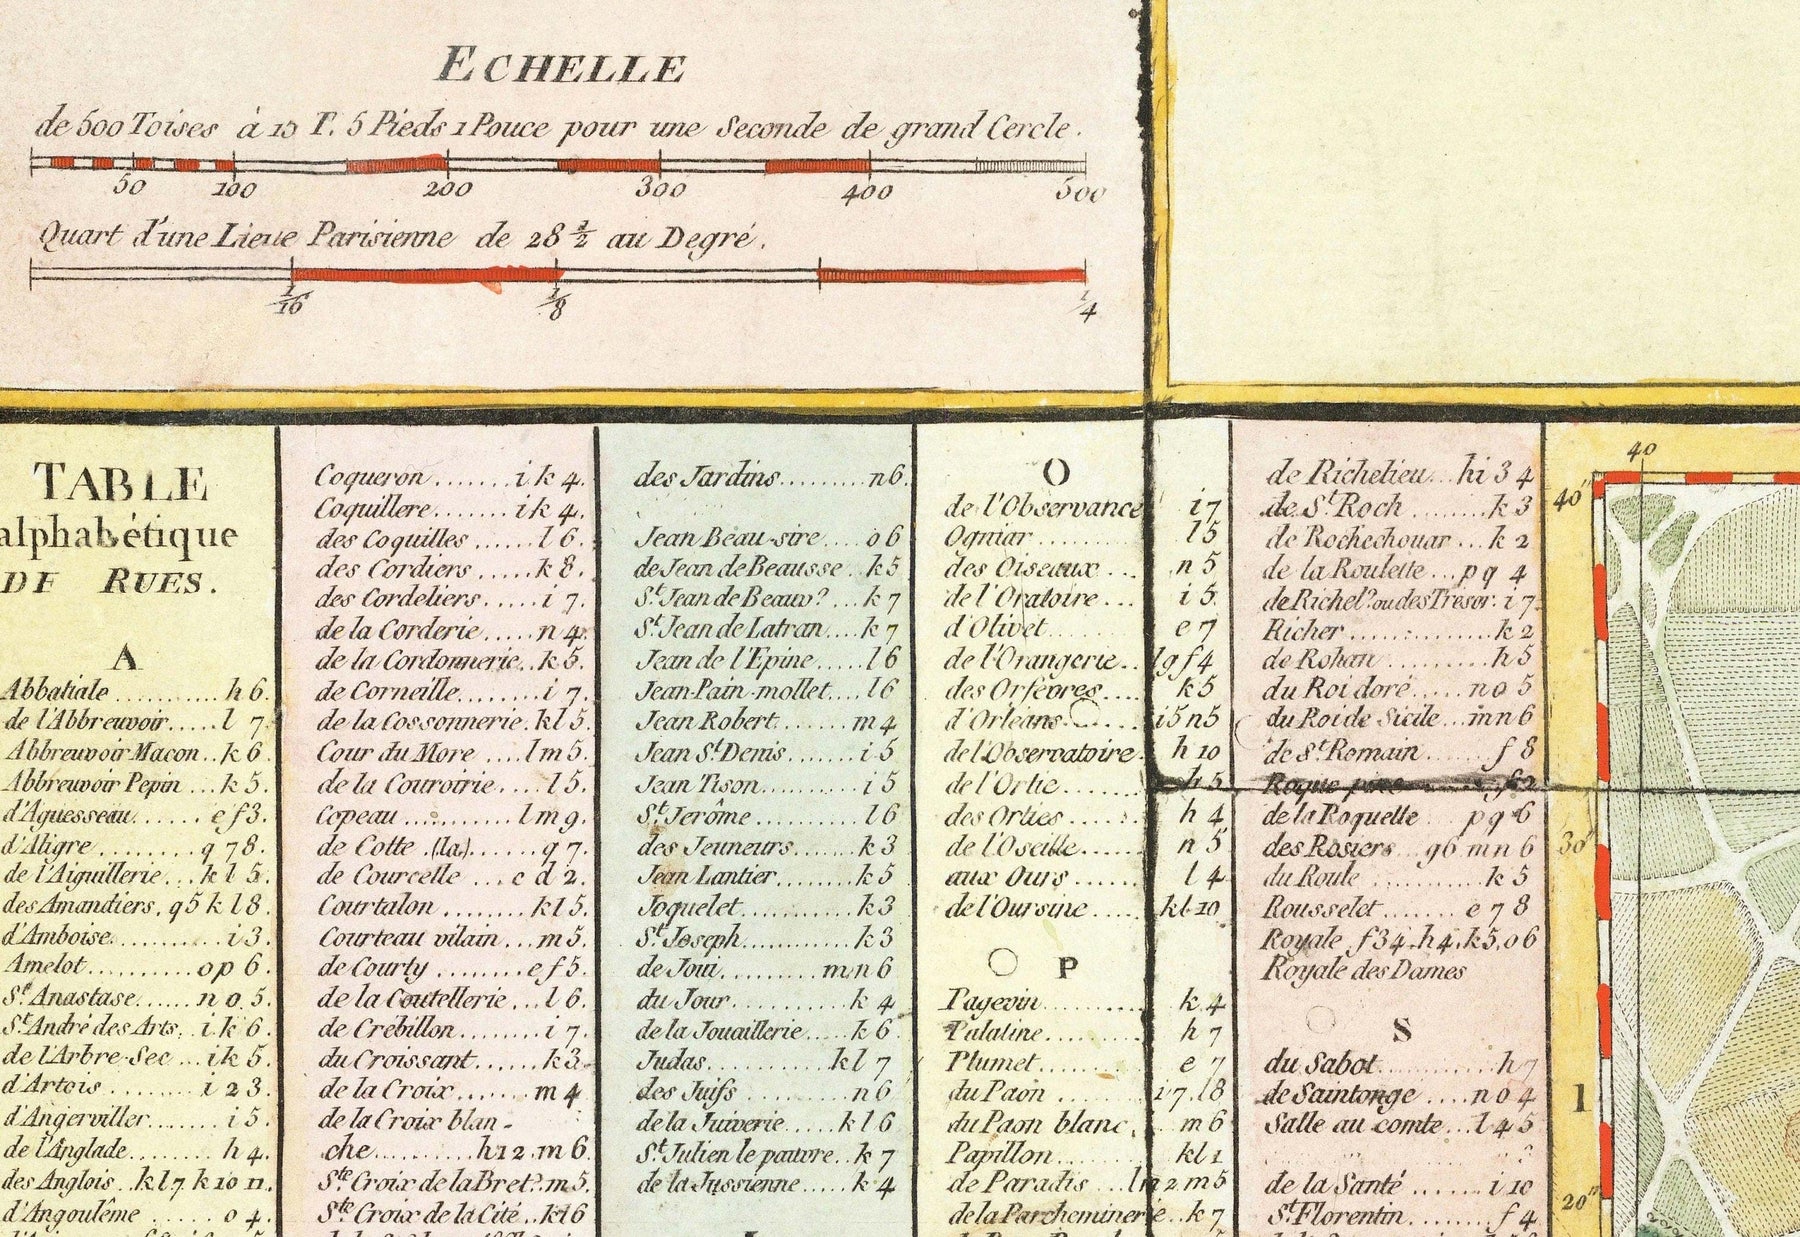 ECHELLE
de 500 Toises à 15 T. 5 Pieds 1 Pouce pour une Seconde de grand Cercle.
50 100 200 300 400 500
Quart d'une Lieue Parisienne de 28 1/2 au Degré.
1/16 1/8 1/4
TABLE
alphabétique
DE RUES.
A
Abbatiale ........... h 6.
de l'Abbreuvoir..... l 7.
Abbreuvoir Macon.. k 6
Abbreuvoir Pepin ... k 5.
d'Aguesseau...... e f 3.
d'Aligre ........ q 7 8.
de l'Aiguillerie... k l 5.
des Amandiers. q 5 k l 8.
d'Amboise.......... i 3.
Amelot.......... o p 6.
St. Anastase...... n o 5.
St. André des Arts. i k 6.
de l'Arbre-Sec ... i k 5.
d'Artois ........ i 2 3.
d'Angerviller...... i 5.
de l'Anglade....... h 4.
des Anglois.. k l 7 k 10 n.
d'Angoulême ...... o 4.
Coqueron ....... i k 4.
Coquillere ....... i k 4.
des Coquilles ...... l 6.
des Cordiers ..... k 8.
des Cordeliers ..... i 7.
de la Corderie ..... n 4.
de la Cordonnerie.. k 5.
de Corneille....... i 7.
de la Cossonnerie. k l 5.
Cour du More .... l m 5.
de la Couroirie..... l 5.
Copeau ......... l m 9.
de Cotte (la)....... q 7.
de Courcelle .... c d 2.
Courtalon ........ k l 5.
Courteau vilain... m 5.
de Courty ........ e f 5.
de la Coutellerie... l 6.
de Crébillon....... i 7.
du Croissant....... k 3.
de la Croix ....... m 4
de la Croix blan-
che......... h 12. m 6.
Ste. Croix de la Bret. m 5.
Ste. Croix de la Cité .. k l 6
des Jardins......... n 6.
Jean Beau-sire.... o 6
de Jean de Beausse.. k 5
St. Jean de Beauv? ... k 7
St. Jean de Latran.... k 7
Jean de l'Epine..... l 6
Jean-Pain-mollet.... l 6
Jean Robert....... m 4
Jean St. Denis...... i 5
Jean Tison......... i 5
St. Jerôme......... l 6
des Jeuneurs....... k 3
Jean Lantier........ k 5
Joquelet........... k 3
St. Joseph.......... k 3
de Joui......... m n 6
du Jour........... k 4
de la Jouaillerie.... k 6
Judas........... k l 7
des Juifs ......... n 6
de la Juiverie .... k l 6
St. Julien le pauvre.. k 7
de la Jussienne..... k 4
O
de l'Observance i 7
Ogniar ......... l 5
des Oiseaux ... n 5
de l'Oratoire ... i 5
d'Olivet ....... e 7
de l'Orangerie..
des Orfèvres.... k 5
d'Orléans...... i 5 n 5
de l'Observatoire. h 10
de l'Ortie...... h 5
des Orties ...... h 4
de l'Oseille ..... n 5
aux Ours ....... l 4
de l'Oursine ..... k l 10
P
Pagevin......... k 4
Palatine......... h 7
Plumet......... e 7
du Paon ....... i 7. l 8
du Paon blanc. m 6
Papillon....... k l 1
de Paradis ... l n 2. m 5
de la Parcheminerie.. k 7
de Richelieu... h i 3 4
de St. Roch ........ k 3
de Rochechouar ... k 2
de la Roulette ... p q 4
de Richel? ou des Trésor. i 7
Richer ........... k 2
de Rohan ......... h 5
du Roi doré...... n o 5
du Roi de Sicile... m n 6
de St. Romain ...... f 8
de la Roquelle ... p q 6
des Rosiers ... g 6 m n 6
du Roule ......... k 5
Rousselet........ e 7 8
Royale f 3 4. h 4. k 5. o 6
Royale des Dames
S
du Sabot........... h 7
de Saintonge .... n o 4
Salle au comte... l 4 5
de la Santé ....... i 10
St. Florentin....... f 4
40
40"
30"
1
20"